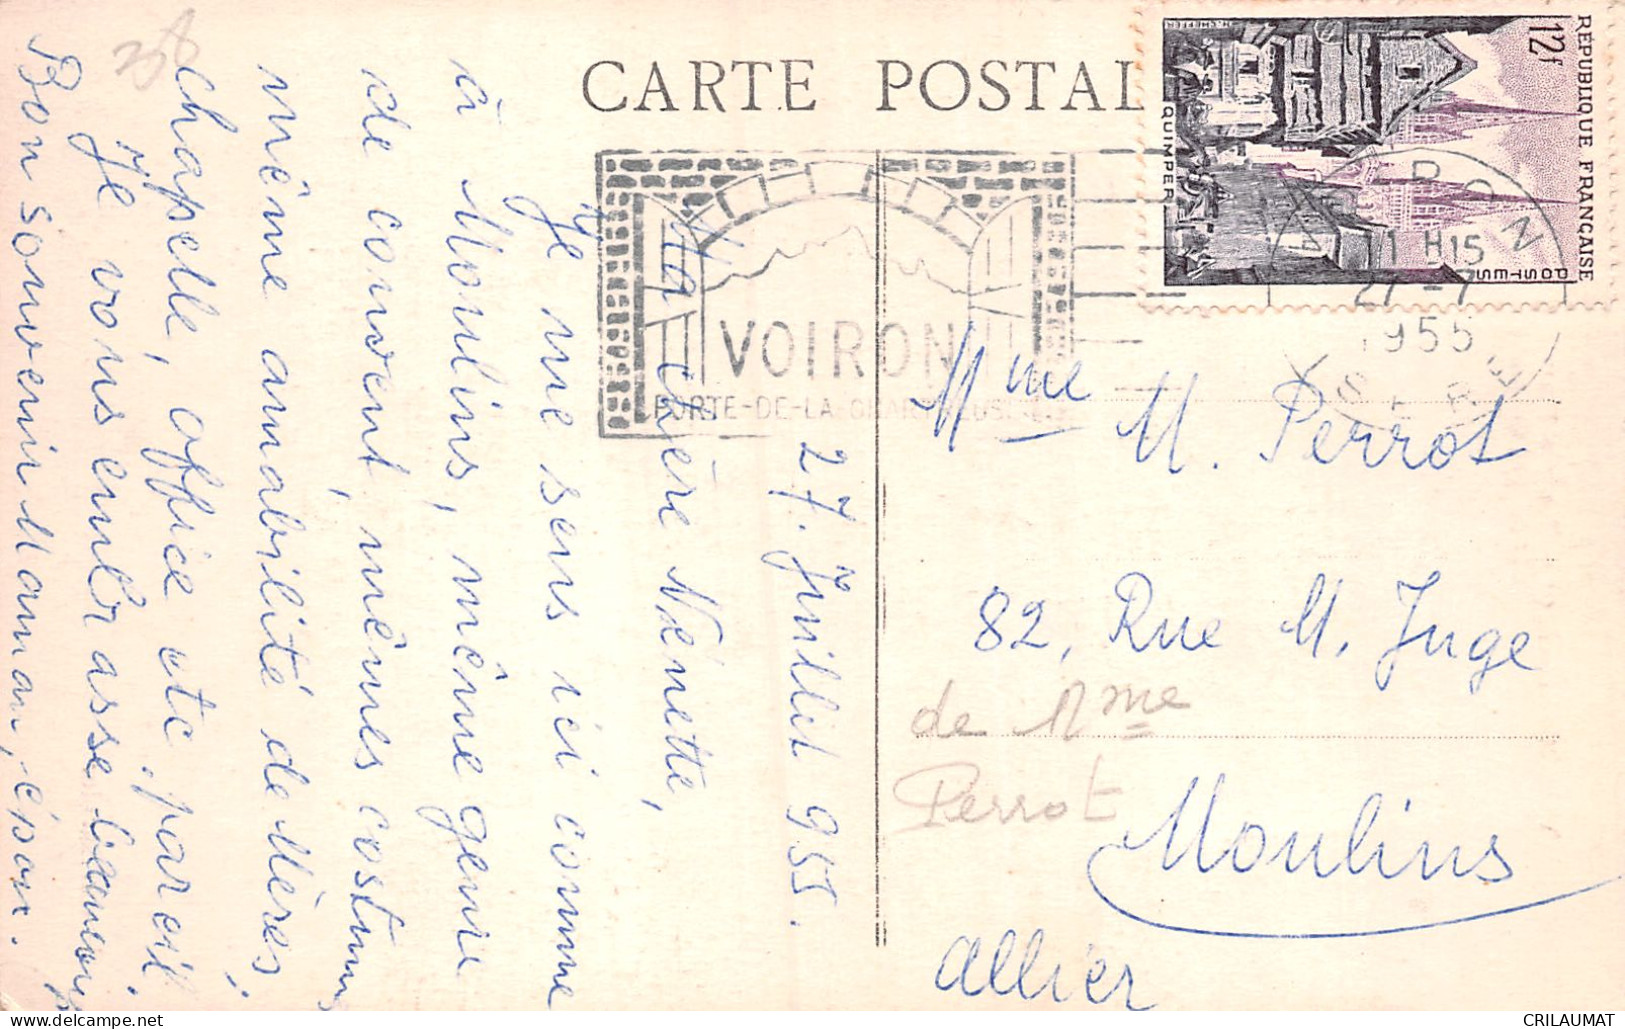 CARTE POSTAL
RÉPUBLIQUE FRANÇAISE
12f
POSTES
QUIMPER
VOIRON
11 H 15
27 - 7
1955
ISERE
VOIRON
PORTE-DE-LA-CHARTREUSE
38
27. Juillet 955.
Ma chère Nénette,
Je me sens ici comme
à Moulins, même genre
de couvent, mêmes costumes
même amabilité de Mères,
chapelle, office etc. pareil.
Je vous embrasse beaucoup
Bon souvenir Maman,
Mme M. Perrot
82, Rue M. Juge
de Mme
Perrot
Moulins
Allier
CRILAUMAT